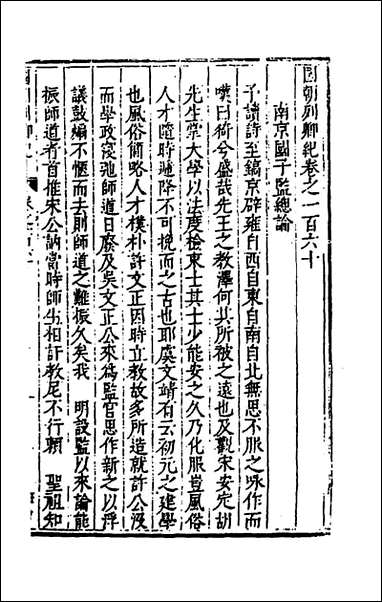 國朝列卿紀卷之一百六十
南京國子監總論
予讀詩至鎬京辟雍自西自東自南自北無思不服之咏作而
嘆曰猗今盛哉先王之教澤何其所被之遠也及觀宋安定胡
先生掌大學以法度檢束士其士少能安之久乃化服豈風俗
人才隨時遞降不可挽而之古也耶虞文靖有云初元之建學
也風俗簡略人才樸朴許文正因時立教故多所造就許公没
而學政寖弛師道日廢及吳文正公來為監官思作新之以浮
議鼓煽不愜而去則師道之難振久矣我 明設監以來論能
振師道者首推宋公訥當時師生相訐教尼不行賴 聖祖知